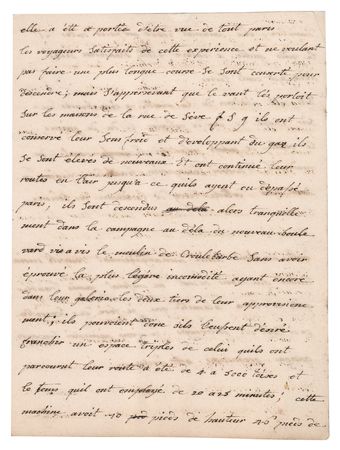 elle a été a portée d'etre vue de tout paris
les voyageurs Satisfaits de cette experience et ne voulant
pas faire une plus longue course Se Sont pour
descendre; mais S'appercevant que le vent les portoit
Sur les maisons de la rue de Seve f S g ils ont
conservé leur Sens froid et developpant du gaz ils
Se Sont elevés de nouveaux. Et ont continué leur
routes en l'air jusqu'a ce quils ayent ou depassé
paris; ils Sont descendus au dela alors tranquille
ment dans la campagne au déla du nouveau boule
vard vis a vis le moulin de Croulebarbe Sans avoir
éprouvé la plus légère incomodité ayant encore
dans leur galerie les deux tiers de leur approvisionne
ment; ils pouvoient donc sils l'eussent desiré
franchir un espace triples de celui quils ont
parcourut leur route a été de 4 a 5000 toises et
le tems quil ont employé de 20 a 25 minutes! cette
machine avoit 70 pieds de hauteur 45 pieds de